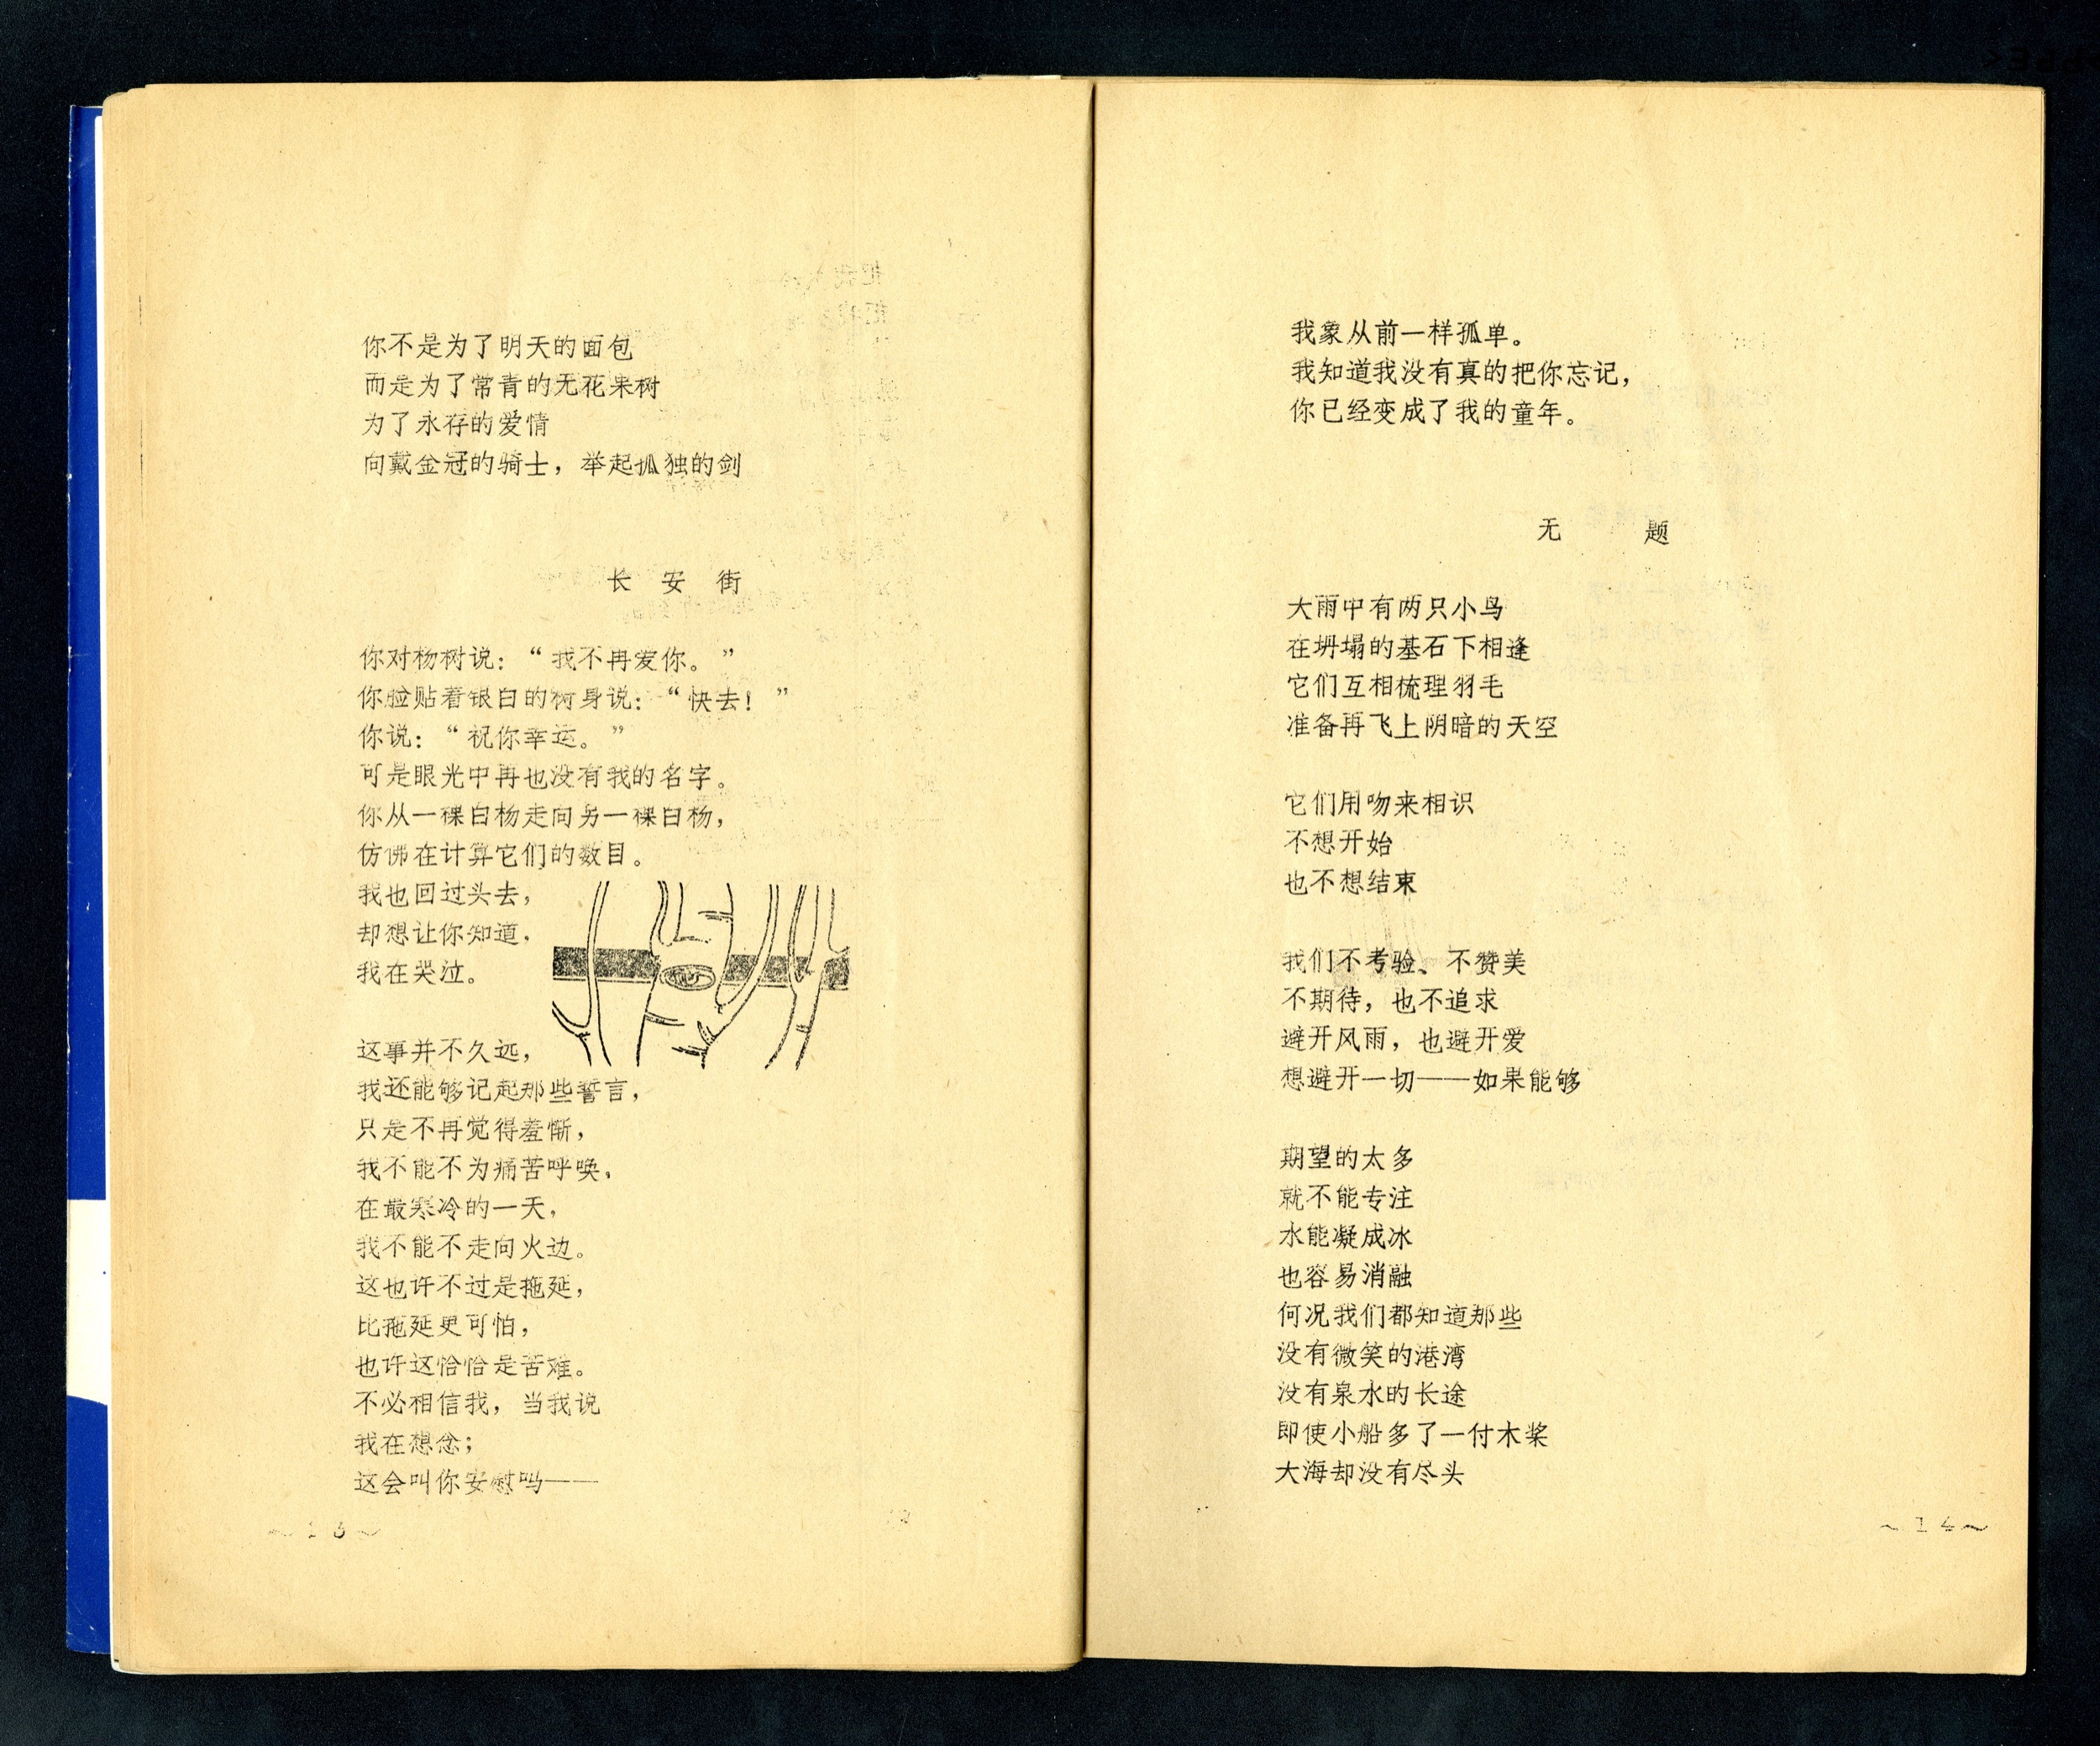 你不是为了明天的面包
而是为了常青的无花果树
为了永存的爱情
向戴金冠的骑士，举起孤独的剑
长 安 街
你对杨树说：“我不再爱你。”
你脸贴着银白的树身说：“快去！”
你说：“祝你幸运。”
可是眼光中再也没有我的名字。
你从一棵白杨走向另一棵白杨，
仿佛在计算它们的数目。
我也回过头去，
却想让你知道，
我在哭泣。
这事并不久远，
我还能够记起那些誓言，
只是不再觉得羞惭，
我不能不为痛苦呼唤，
在最寒冷的一天，
我不能不走向火边。
这也许不过是拖延，
比拖延更可怕，
也许这恰恰是苦难。
不必相信我，当我说
我在想念；
这会叫你安慰吗——
～13～
我象从前一样孤单。
我知道我没有真的把你忘记，
你已经变成了我的童年。
无 题
大雨中有两只小鸟
在坍塌的基石下相逢
它们互相梳理羽毛
准备再飞上阴暗的天空
它们用吻来相识
不想开始
也不想结束
我们不考验、不赞美
不期待，也不追求
避开风雨，也避开爱
想避开一切——如果能够
期望的太多
就不能专注
水能凝成冰
也容易消融
何况我们都知道那些
没有微笑的港湾
没有泉水的长途
即使小船多了一付木桨
大海却没有尽头
～14～